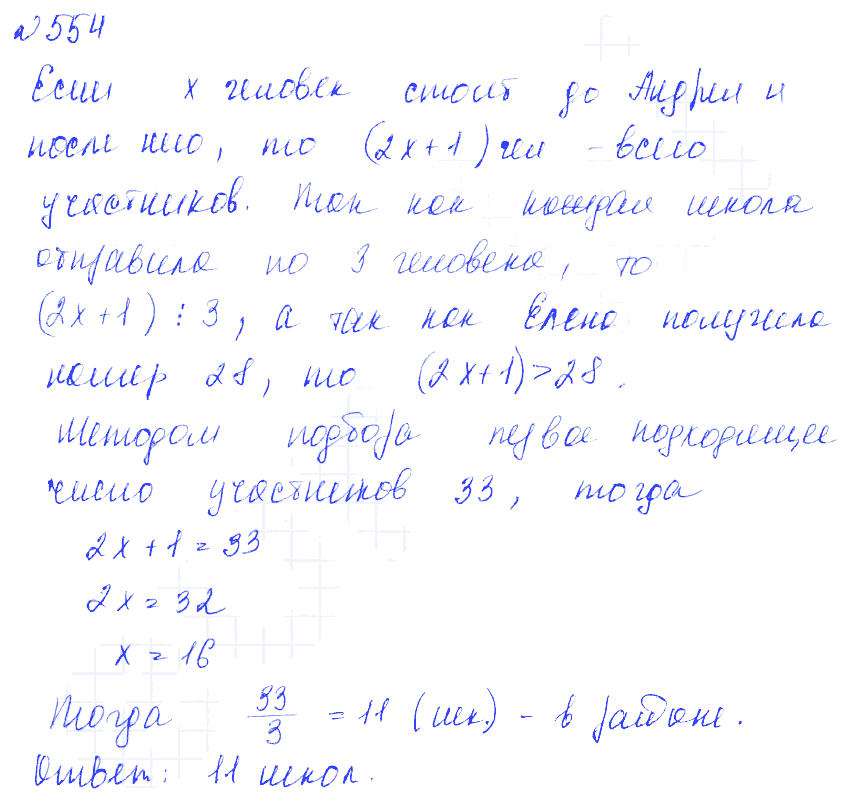 №554
Если х человек стоит до Андрея и
после него, то (2x+1) чел - всего
участников. Так как каждая школа
отправила по 3 человека, то
(2x+1) ⋮ 3, а так как Елена получила
номер 28, то (2x+1)>28.
Методом подбора первое подходящее
число участников 33, тогда
2x+1=33
2x=32
x=16
Тогда 33/3 = 11 (шк.) - в районе.
Ответ: 11 школ.